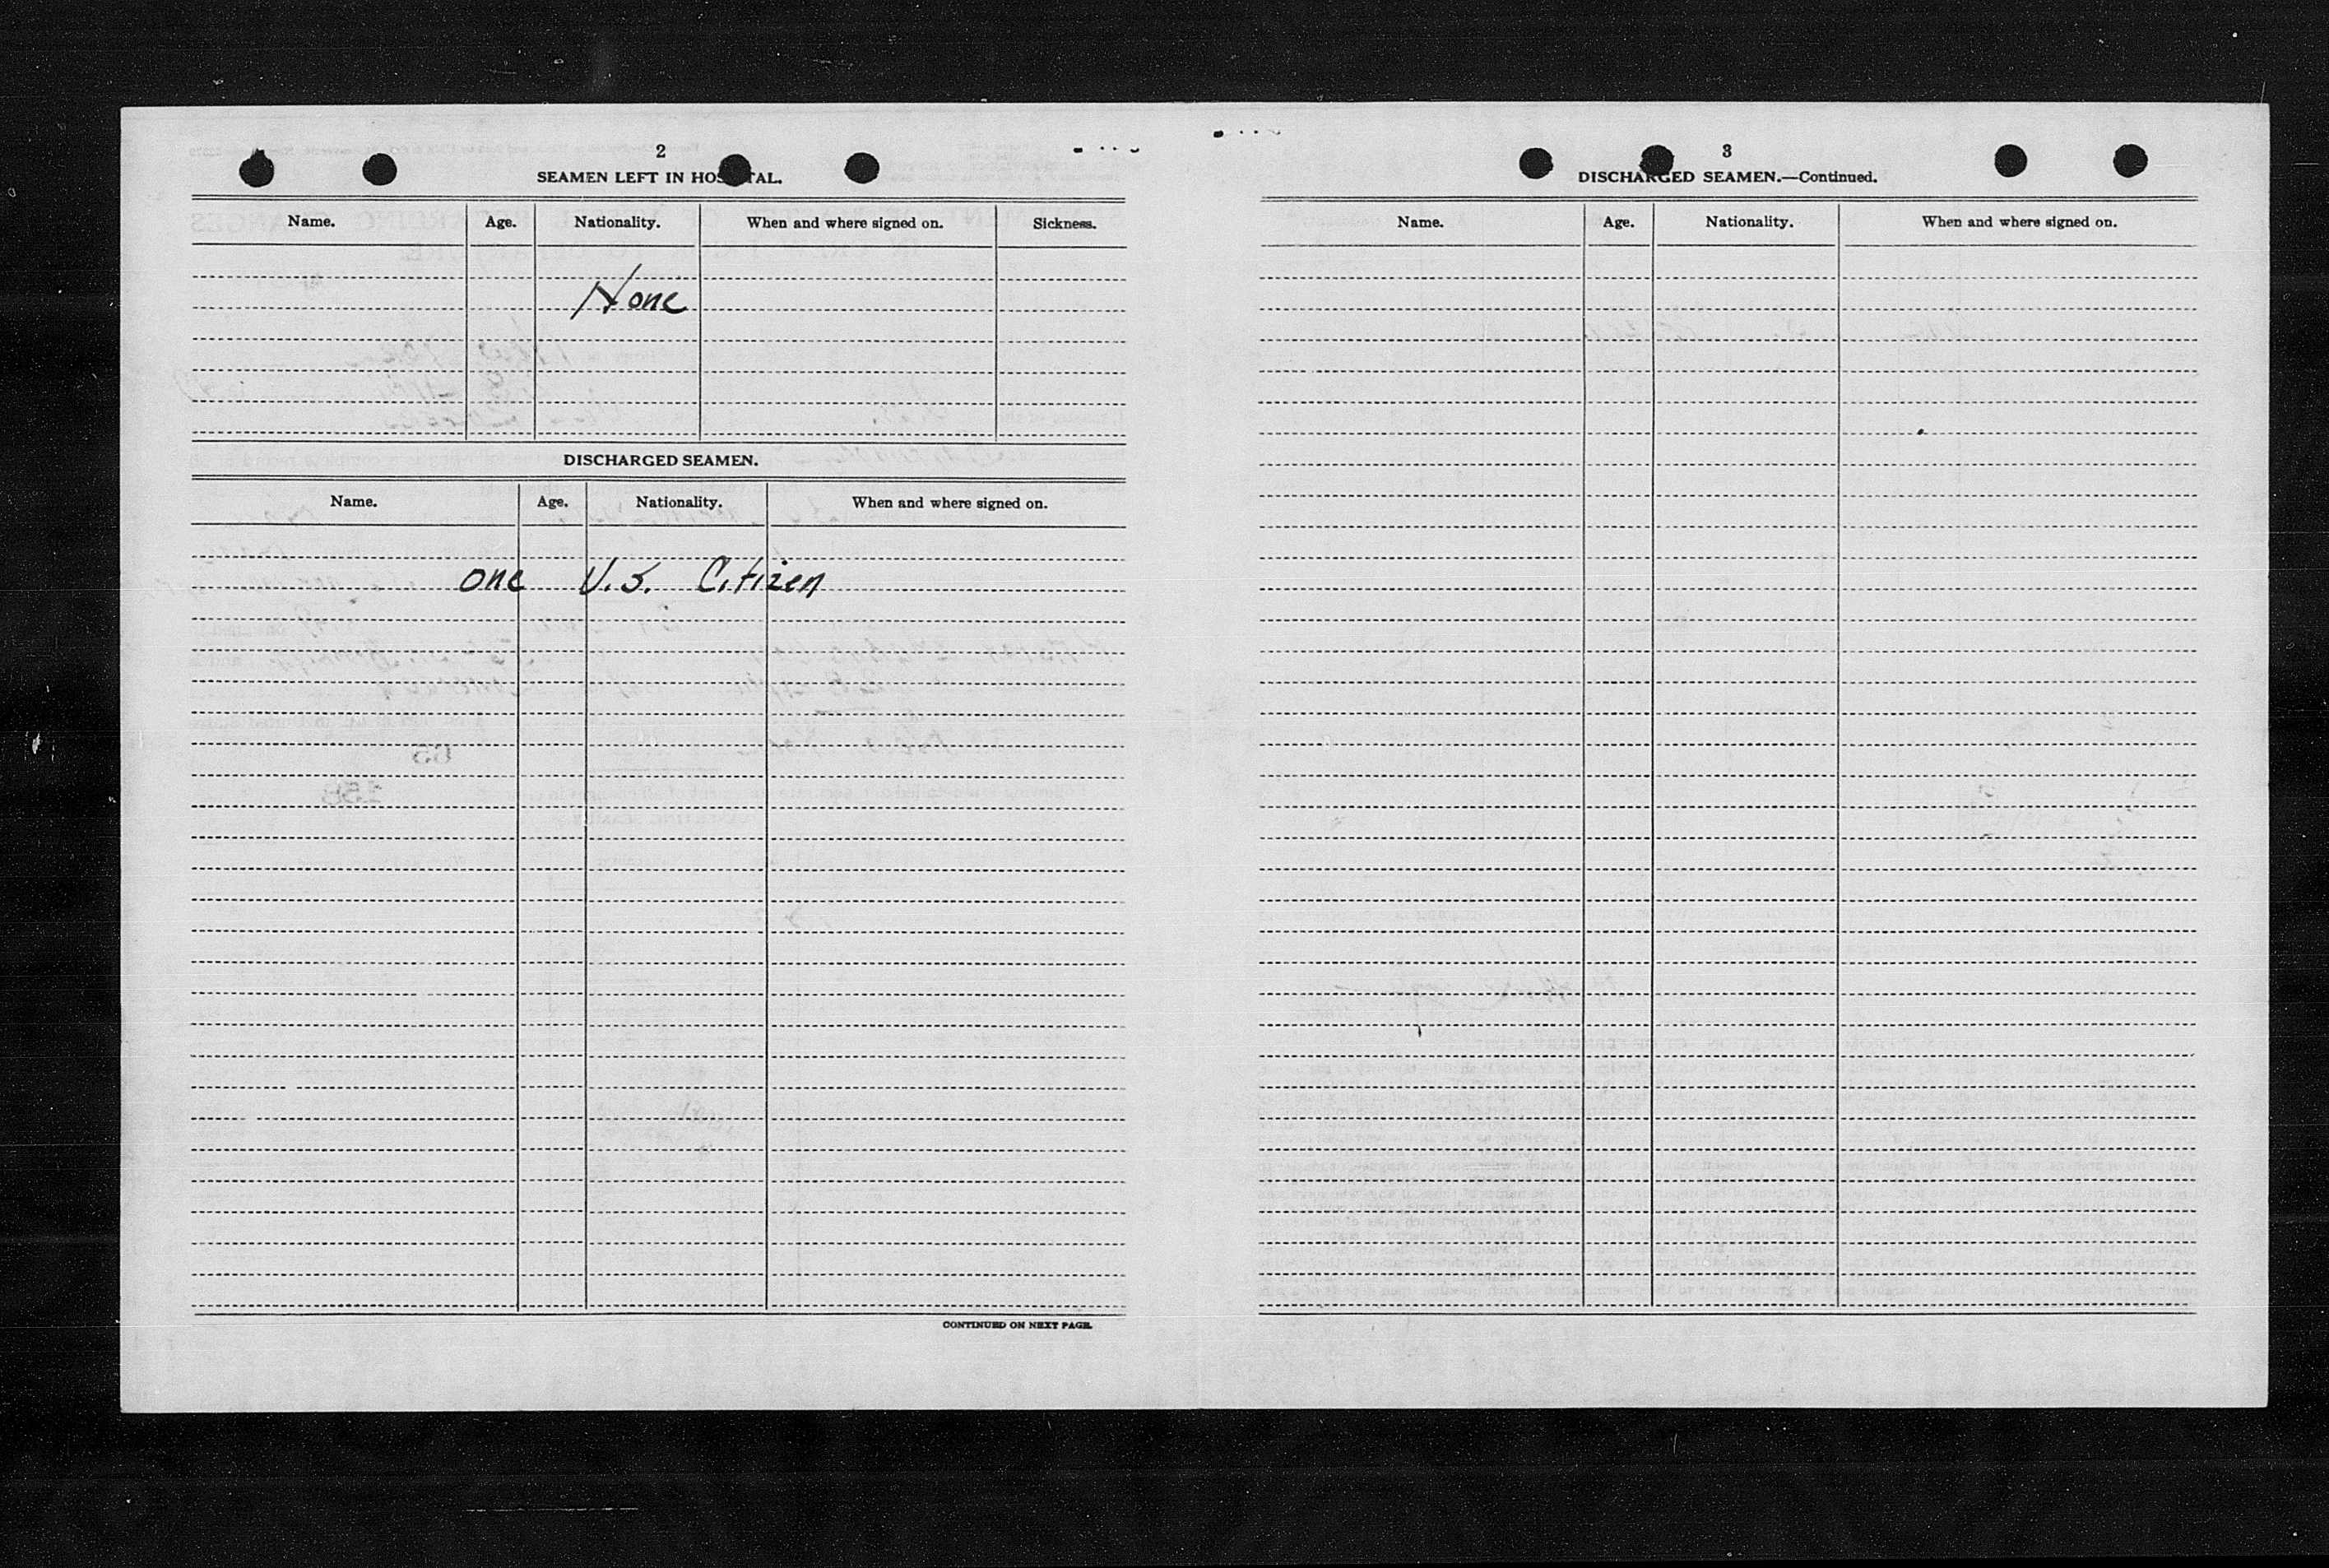 2
SEAMEN LEFT IN HOSPITAL.
Name. Age. Nationality. When and where signed on. Sickness.
None
DISCHARGED SEAMEN.
Name. Age. Nationality. When and where signed on.
one U.S. Citizen
CONTINUED ON NEXT PAGE.
3
DISCHARGED SEAMEN.—Continued.
Name. Age. Nationality. When and where signed on.